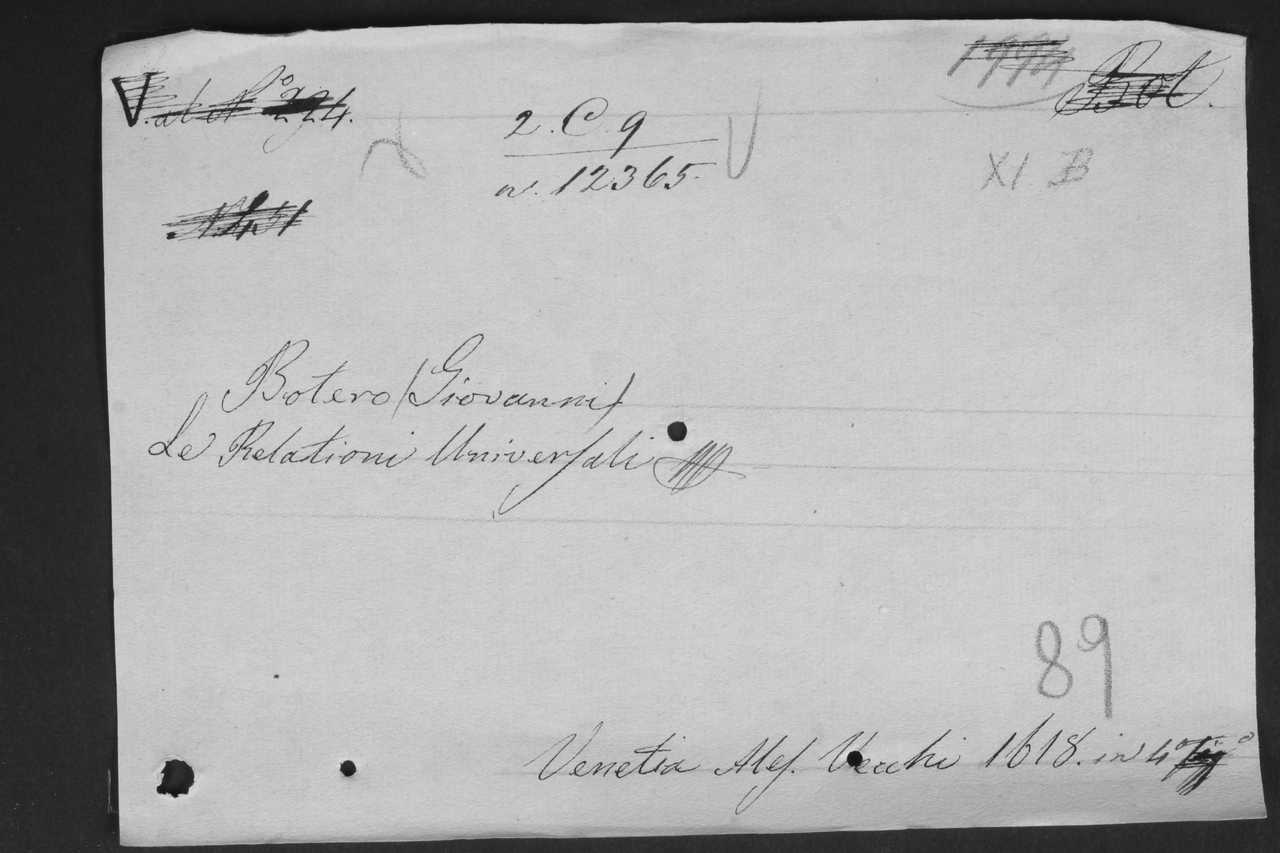 V. al N.º 224.
2. C. 9
n. 12365.
Bot.
XI B
Botero (Giovanni)
Le Relationi Universali
89
Venetia Ales. Vecchi 1618. in 4º